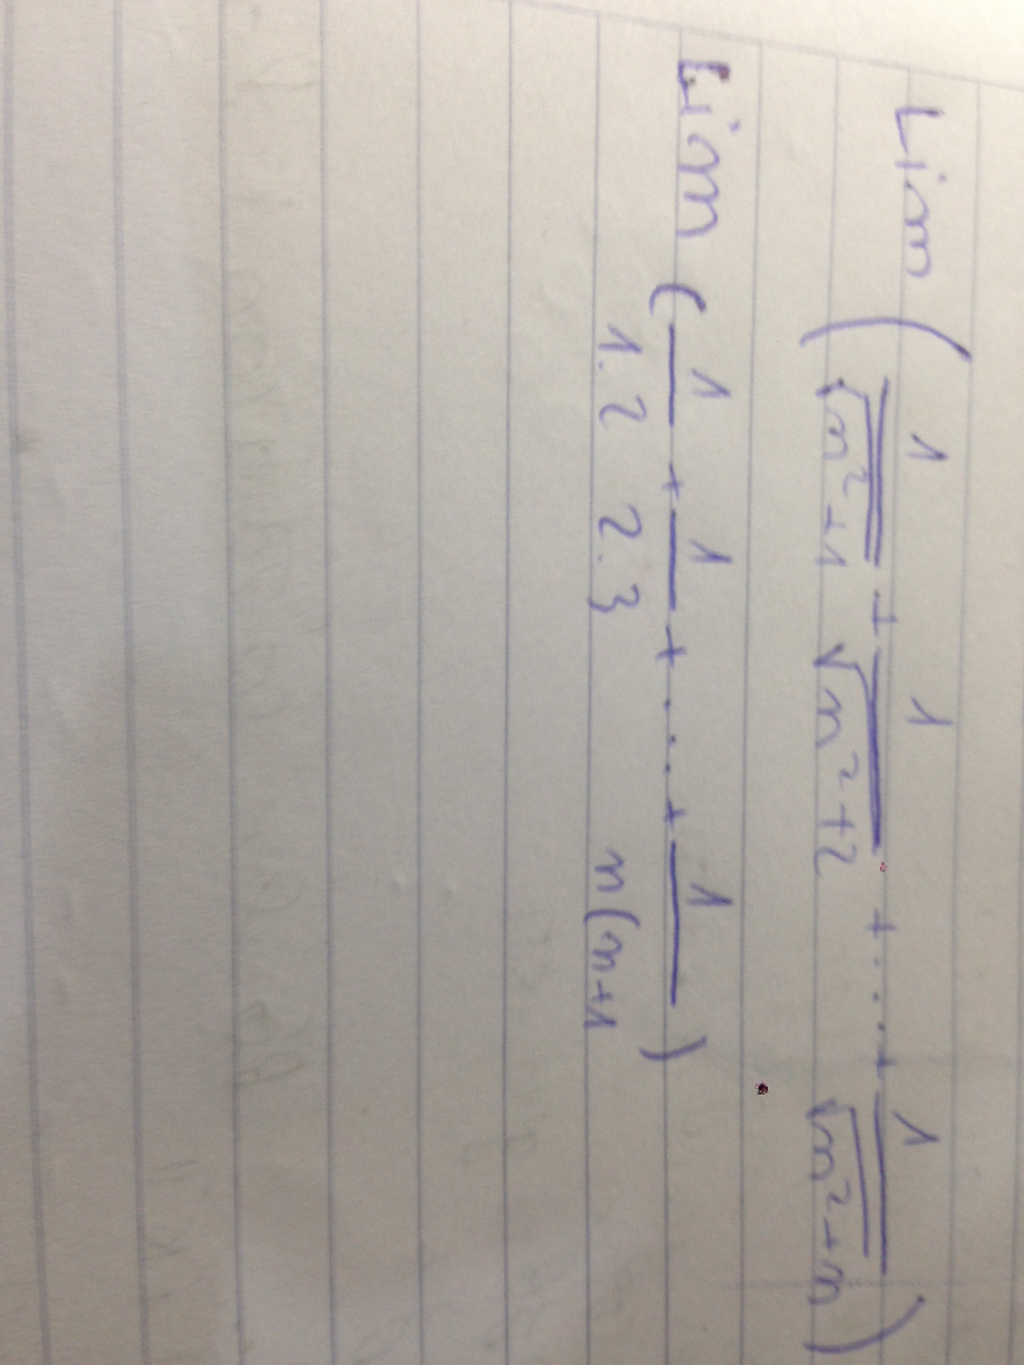 Lim ( 1/√(n²+1) + 1/√(n²+2) + ... + 1/√(n²+n) )
Lim ( 1/1.2 + 1/2.3 + ... + 1/n(n+1 )